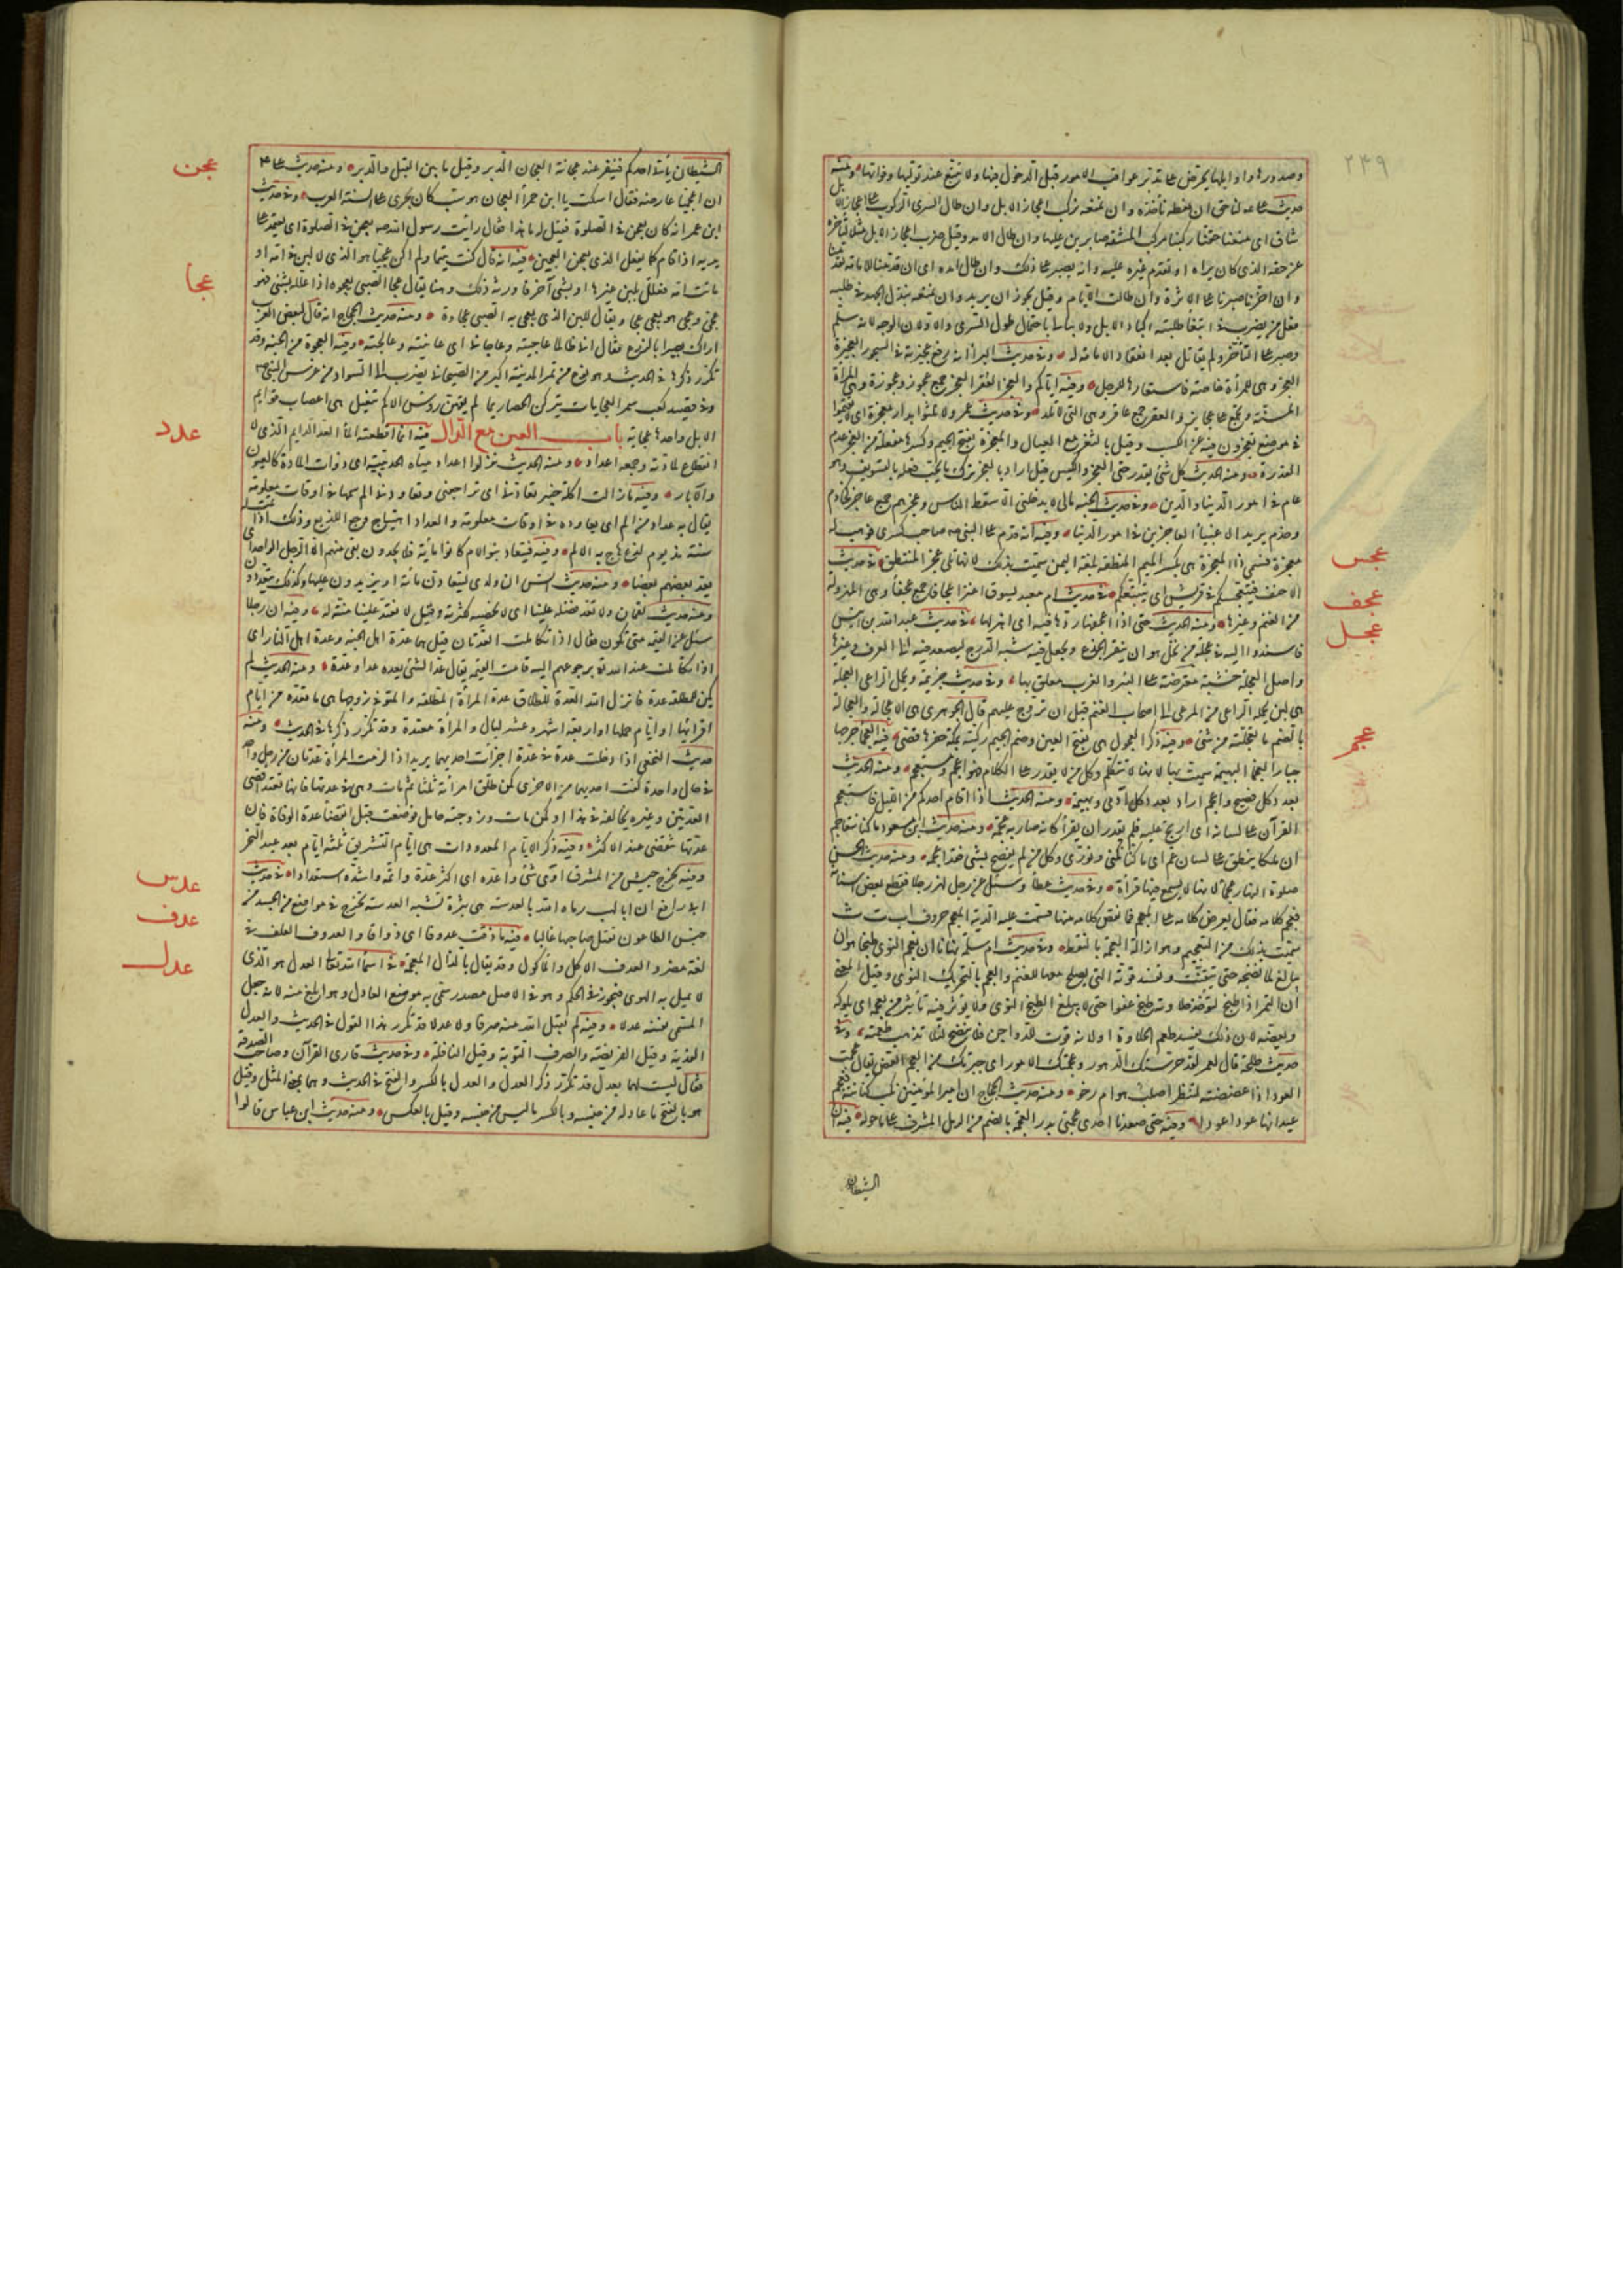 ٢٤٩
وصدورها واوايلها يحرض على تدبر عواقب الامور قبل الدخول فيها ولا تتبع عند توليها وفواتها ومنه
حديث على لنا حق ان نعطه ناخذه وان نمنعه نركب اعجاز الابل وان طال السرى الركوب على اعجاز الابل
شاق اى منعنا حقنا ركبنا مركب المشقة صابرين عليها وان طال الامد وقيل ضرب اعجاز الابل مثلا لتأخره
عن حقه الذى كان يراه له وتقدم غيره عليه وانه يصبر على ذلك وان طال امده اى ان قدمنا للامامة تقدمنا
وان اخرنا صبرنا على الاثرة وان طالت الايام وقيل يجوز ان يريد وان نمنعه نبذل الجهد فى طلبه
فعل من يضرب فى ابتغاء طلبته اكباد الابل ولا يبالى باحتمال طول السرى والاولان الوجه لانه سلم
وصبر على التأخر ولم يقاتل بعد انعقاد الامامة له وفى حديث البراء انه رفع عجيزته فى السجود العجيزة
العجز وهى للمرأة خاصة فاستعارها للرجل وفيه اياكم والعجز العقر العجز جمع عجوز وعجوزة وهى المرأة
المسنة وتجمع على عجايز والعقر جمع عاقر وهى التى لا تلد وفى حديث عمر ولا تلثوا بدار معجزة اى لا تقيموا
فى موضع تعجزون فيه عن الكسب وقيل بالثغر مع العيال والمعجزة بفتح الجيم وكسرها مفعلة من العجز عدم
القدرة ومنه الحديث كل شئ بقدر حتى العجز والكيس قيل اراد بالعجز ترك ما يجب فعله بالتسويف وهو
عام فى امور الدنيا والدين وفى حديث الجنة مالى لا يدخلنى الا سقط الناس وعجزهم جمع عاجز كخادم
وخدم يريد الاغبياء العاجزين فى امور الدنيا وفيه انه قدم على النبى صه صاحب كسرى فوهب له
معجزة فسمى ذا المعجزة هى بكسر الميم المنطقة بلغة اليمن سميت بذلك لانها تلى عجز المتنطق فى حديث
عجس
الاحنف فيتعجسكم فى قريش اى يتتبعكم فى حديث ام معبد يسوق اعنزا عجافا جمع عجفاء وهى المهزولة
عجف
من الغنم وغيرها ومنه الحديث حتى اذا اعجفها ردها فيه اى اهزلها فى حديث عبد الله بن انيس
عجل
فاسندوا اليه فى عجلة من نخل هو ان ينقر الجذع ويجعل فيه شبه الدرج ليصعد فيه الى الغرف وغيرها
واصل العجلة خشبة معترضة على البئر والغرب معلق بها وفى حديث خزيمة ويحمل الراعى العجالة
هى لبن يحمله الراعى من المرعى الى اصحاب الغنم قبل ان تروح عليهم قال الجوهرى هى الاعجالة والعجالة
بالضم ما تعجلته من شئ وفيه ذكر العجول هى بفتح العين وضم الجيم ركية بمكة حفرها قصى فيه العجماء جرحها
عجم
جبار العجماء البهيمة سميت بها لانها لا تتكلم وكل من لا يقدر على الكلام فهو اعجم ومستعجم ومنه الحديث
بعدد كل فصيح واعجم اراد بعدد كل آدمى وبهيمة ومنه الحديث اذا قام احدكم من الليل فاستعجم
القرآن على لسانه اى ارتج عليه فلم يقدر ان يقرأ كانه صار به عجمة ومنه حديث ابن مسعود ما كنا نتعاجم
ان ملكا ينطق على لسان عمر اى ما كنا نكنى ونورى وكل من لم يفصح بشئ فقد اعجمه ومنه حديث الحسن
صلوة النهار عجماء لانها لا يسمع فيها قرأة وفى حديث عطاء وسئل عن رجل لهز رجلا فقطع بعض لسانه
فعجم كلامه فقال يعرض كلامه على المعجم فما نقص كلامه منها قسمت عليه الدية المعجم حروف ا ب ت ث
سميت بذلك من التعجيم وهو ازالة العجمة بالنقط وفى حديث ام سلمة نهانا ان نعجم النوى طبخا هو ان
يبالغ فى نضجه حتى يتفتت وتفسد قوته التى يصلح معها للغنم والعجم بالتحريك النوى وقيل المعنى
ان التمر اذا طبخ لتؤخذ حلاوته طبخ عفوا حتى لا يبلغ الطبخ النوى ولا يؤثر فيه تأثير من يعجمه اى يلوكه
ويعضه لان ذلك يفسد طعم الحلاوة او لانه قوت للدواجن فلا ينضج لئلا تذهب طعمته وفى
حديث طلحة قال لعمر لقد جرستك الدهور وعجمتك الامور اى خبرتك من العجم العض يقال عجمت
العود اذا عضضته لتنظر اصلب هو ام رخو ومنه حديث الحجاج ان امير المؤمنين نكب كنانته فعجم
عيدانها عودا عودا وفيه حتى صعدنا احدى عجمتى بدر العجمة بالضم من الرمل المشرف على ما حوله فيه ان
الشيطان
الشيطان يأتى احدكم فينقر عند عجانه العجان الدبر وقيل ما بين القبل والدبر ومنه حديث على
عجن
ان اعجميا عارضه فقال اسكت يا ابن حمراء العجان هو سب كان يجرى على السنة العرب وفى حديث
ابن عمر انه كان يعجن فى الصلوة فقيل له ما هذا فقال رأيت رسول الله صه يعجن فى الصلوة اى يعتمد على
يديه اذا قام كما يفعل الذى يعجن العجين فيه انه قال كنت يتيما ولم اكن عجيا هو الذى لا لبن لامه او
عجا
ماتت امه فعلل بلبن غيرها او بشئ آخر فاورثه ذلك وهنا يقال عجا الصبى يعجوه اذا علله بشئ فهو
عجى وعجى هو يعجى عجا ويقال للبن الذى يعجى به الصبى عجاوة ومنه حديث الحجاج انه قال لبعض الاعراب
اراك بصيرا بالزرع فقال انى طالما عاجيته وعاجانى اى عانيته وعالجته وفيه العجوة من الجنة وقد
تكرر ذكرها فى الحديث وهو نوع من تمر المدينة اكبر من الصيحانى يضرب الى السواد من غرس النبى صم
وفى قصيد كعب سمر العجايات يتركن الحصا زيما لم يقهن رؤس الاكم تنعيل هى اعصاب قوايم
الابل واحدها عجاية باب العين مع الدال فيه انما اقطعته الماء العد الدايم الذى لا
عدد
انقطاع لمادته وجمعه اعداد ومنه الحديث نزلوا اعداد مياه الحديبية اى ذوات المادة كالعيون
والآبار وفيه ما زالت اكلة خيبر تعادنى اى تراجعنى وتعاودنى الم سمها فى اوقات معلومة
يقال به عداد من الم اى يعاوده فى اوقات معلومة والعداد اهتياج وجع اللديغ وذلك اذا تمت له
سنة مذ يوم لدغ هاج به الالم وفيه فيتعاد بنو الام كانوا مأية فلا يجدون بقى منهم الا الرجل الواحد اى
يعد بعضهم بعضا ومنه حديث انس ان ولدى ليتعادون مأية او يزيدون عليها وكذلك يتعددون
ومنه حديث لقمان ولا نعد فضله علينا اى لا نحصيه لكثرته وقيل لا نعتده علينا منة له وفيه ان رجلا
سئل عن القيمة متى تكون فقال اذا تكاملت العدتان قيل هما عدة اهل الجنة وعدة اهل النار اى
اذا تكاملت عند الله برجوعهم اليه قامت القيمة يقال عد الشئ يعده عدا وعدة ومنه الحديث لم
يكن للمطلقة عدة فانزل الله العدة للطلاق عدة المرأة المطلقة والمتوفى زوجها هى ما تعده من ايام
اقرائها او ايام حملها او اربعة اشهر وعشر ليال والمرأة معتدة وقد تكرر ذكرها فى الحديث ومنه
حديث النخعى اذا دخلت عدة فى عدة اجزأت احديهما يريد اذا لزمت المرأة عدتان من رجل واحد
فى حال واحدة كفت احديهما من الاخرى كمن طلق امرأته ثلثا ثم مات وهى فى عدتها فانها تعتد اقصى
العدتين وغيره يخالفه فى هذا او كمن مات وزوجته حامل فوضعت قبل انقضاء عدة الوفاة فان
عدتها تنقضى عند الاكثر وفيه ذكر الايام المعدودات هى ايام التشريق ثلثة ايام بعد عيد النحر
وفيه يخرج جيش من المشرق آدى شئ واعده اى اكثر عدة واتمه واشده استعدادا فى حديث
عدس
ابى رافع ان ابا لهب رماه الله بالعدسة هى بثرة تشبه العدسة تخرج فى مواضع من الجسد من
جنس الطاعون تقتل صاحبها غالبا فيه ما ذقت عدوفا اى ذواقا والعدوف العلف فى
عدف
لغة مضر والعدف الاكل والمأكول وقد يقال بالذال المعجمة فى اسماء الله تعالى العدل هو الذى
عدل
لا يميل به الهوى فيجور فى الحكم وهو فى الاصل مصدر سمى به موضع العادل وهو ابلغ منه لانه جعل
المسمى نفسه عدلا وفيه لم يقبل الله منه صرفا ولا عدلا قد تكرر هذا القول فى الحديث والعدل
الفدية وقيل الفريضة والصرف التوبة وقيل النافلة وفى حديث قارى القرآن وصاحب الصدقة
فقال ليست لهما بعدل قد تكرر ذكر العدل والعدل بالكسر والفتح فى الحديث وهما بمعنى المثل وقيل
هو بالفتح ما عادله من جنسه وبالكسر ما ليس من جنسه وقيل بالعكس ومنه حديث ابن عباس قالوا